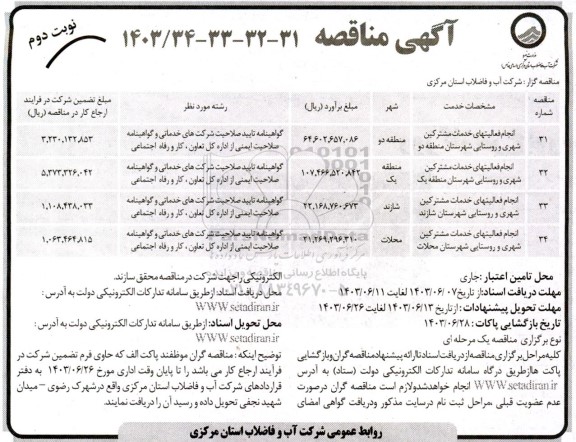 آگهی مناقصه ۳۱-۳۲-۳۳-۱۴۰۳/۳۴
نوبت دوم
مناقصه گزار : شرکت آب و فاضلاب استان مرکزی
مناقصه شماره | مشخصات خدمت | شهر | مبلغ برآورد (ریال) | رشته مورد نظر | مبلغ تضمین شرکت در فرایند ارجاع کار در مناقصه (ریال)
۳۱ | انجام فعالیتهای خدمات مشترکین شهری و روستایی شهرستان منطقه دو | منطقه دو | ۶۴,۶۰۲,۶۵۷,۰۸۶ | گواهینامه تایید صلاحیت شرکت های خدماتی و گواهینامه صلاحیت ایمنی از اداره کل تعاون ، کار و رفاه اجتماعی | ۳,۲۳۰,۱۳۲,۸۵۳
۳۲ | انجام فعالیتهای خدمات مشترکین شهری و روستایی شهرستان منطقه یک | منطقه یک | ۱۰۷,۴۶۶,۵۲۰,۸۴۲ | گواهینامه تایید صلاحیت شرکت های خدماتی و گواهینامه صلاحیت ایمنی از اداره کل تعاون ، کار و رفاه اجتماعی | ۵,۳۷۳,۳۲۶,۰۴۲
۳۳ | انجام فعالیتهای خدمات مشترکین شهری و روستایی شهرستان شازند | شازند | ۲۲,۱۶۸,۷۶۰,۶۷۳ | گواهینامه تایید صلاحیت شرکت های خدماتی و گواهینامه صلاحیت ایمنی از اداره کل تعاون ، کار و رفاه اجتماعی | ۱,۱۰۸,۴۳۸,۰۳۳
۳۴ | انجام فعالیتهای خدمات مشترکین شهری و روستایی شهرستان محلات | محلات | گواهینامه تایید صلاحیت شرکت های خدماتی و گواهینامه صلاحیت ایمنی از اداره کل تعاون ، کار و رفاه اجتماعی | ۱,۰۶۳,۴۶۴,۸۱۵
محل تامین اعتبار :جاری
مهلت دریافت اسناد:از تاریخ ۱۴۰۳/۰۶/۰۷ لغایت ۱۴۰۳/۰۶/۱۱
مهلت تحویل پیشنهادات : از تاریخ ۱۴۰۳/۰۶/۱۳ لغایت ۱۴۰۳/۰۶/۲۶
تاریخ بازگشایی پاکات : ۱۴۰۳/۰۶/۲۸
نوع برگزاری مناقصه یک مرحله ای
کلیه مراحل برگزاری مناقصه از دریافت اسناد تا ارائه پیشنهاد مناقصه گران و بازگشایی
پاکت ها از طریق درگاه سامانه تدارکات الکترونیکی دولت (ستاد) به آدرس
WWW.setadiran.ir انجام خواهد شد و لازم است مناقصه گران در صورت
عدم عضویت قبلی ،مراحل ثبت نام در سایت مذکور و دریافت گواهی امضای
الکترونیکی را جهت شرکت در مناقصه محقق سازند.
محل دریافت اسناد: از طریق سامانه تدارکات الکترونیکی دولت به آدرس :
WWW.setadiran.ir
محل تحویل اسناد: از طریق سامانه تدارکات الکترونیکی دولت به آدرس :
WWW.setadiran.ir
توضیح اینکه : مناقصه گران موظفند پاکت الف که حاوی فرم تضمین شرکت در
فرآیند ارجاع کار می باشد را تا پایان وقت اداری مورخ ۱۴۰۳/۰۶/۲۶ به دفتر
قراردادهای شرکت آب و فاضلاب استان مرکزی واقع در شهرک رضوی – میدان
شهید نجفی تحویل داده و رسید آن را دریافت نمایند.
روابط عمومی شرکت آب و فاضلاب استان مرکزی